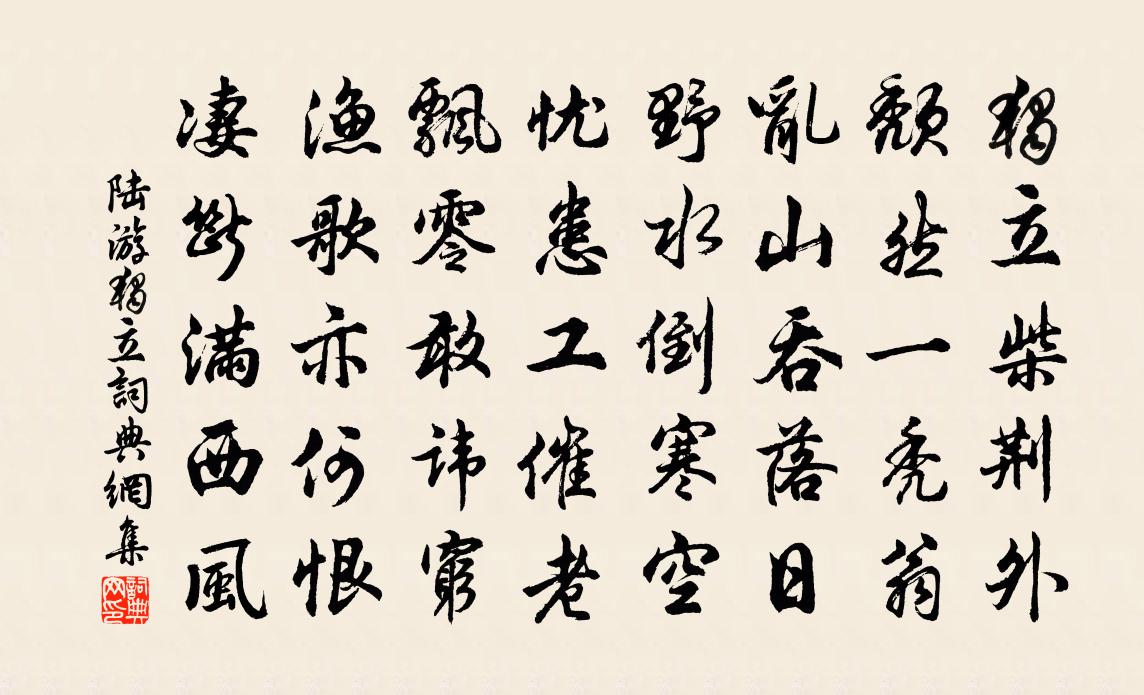 獨立柴荆外
頹然一禿翁
亂山吞落日
野水倒寒空
忧患工催老
飄零敢諱窮
漁歌亦何恨
凄斷滿西風
陆游獨立詞典網集
詞典网印